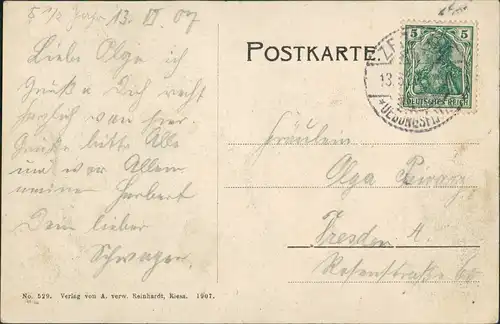 13. IV 07
Liebe Olga ich
Grüße Dich recht
herzlich von hier
Grüße bitte Alle
und vor Allem
meine Herbert
Dein lieber
Schwager
POSTKARTE.
5 5
DEUTSCHES REICH
13.
*UEBUNGSPL
Fräulein
Olga
Dresden A.
Rosenstraße
No. 529. Verlag von A. verw. Reinhardt, Riesa. 1907.